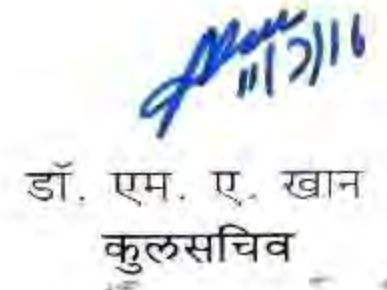 11/7/16
डॉ. एम. ए. खान
कुलसचिव